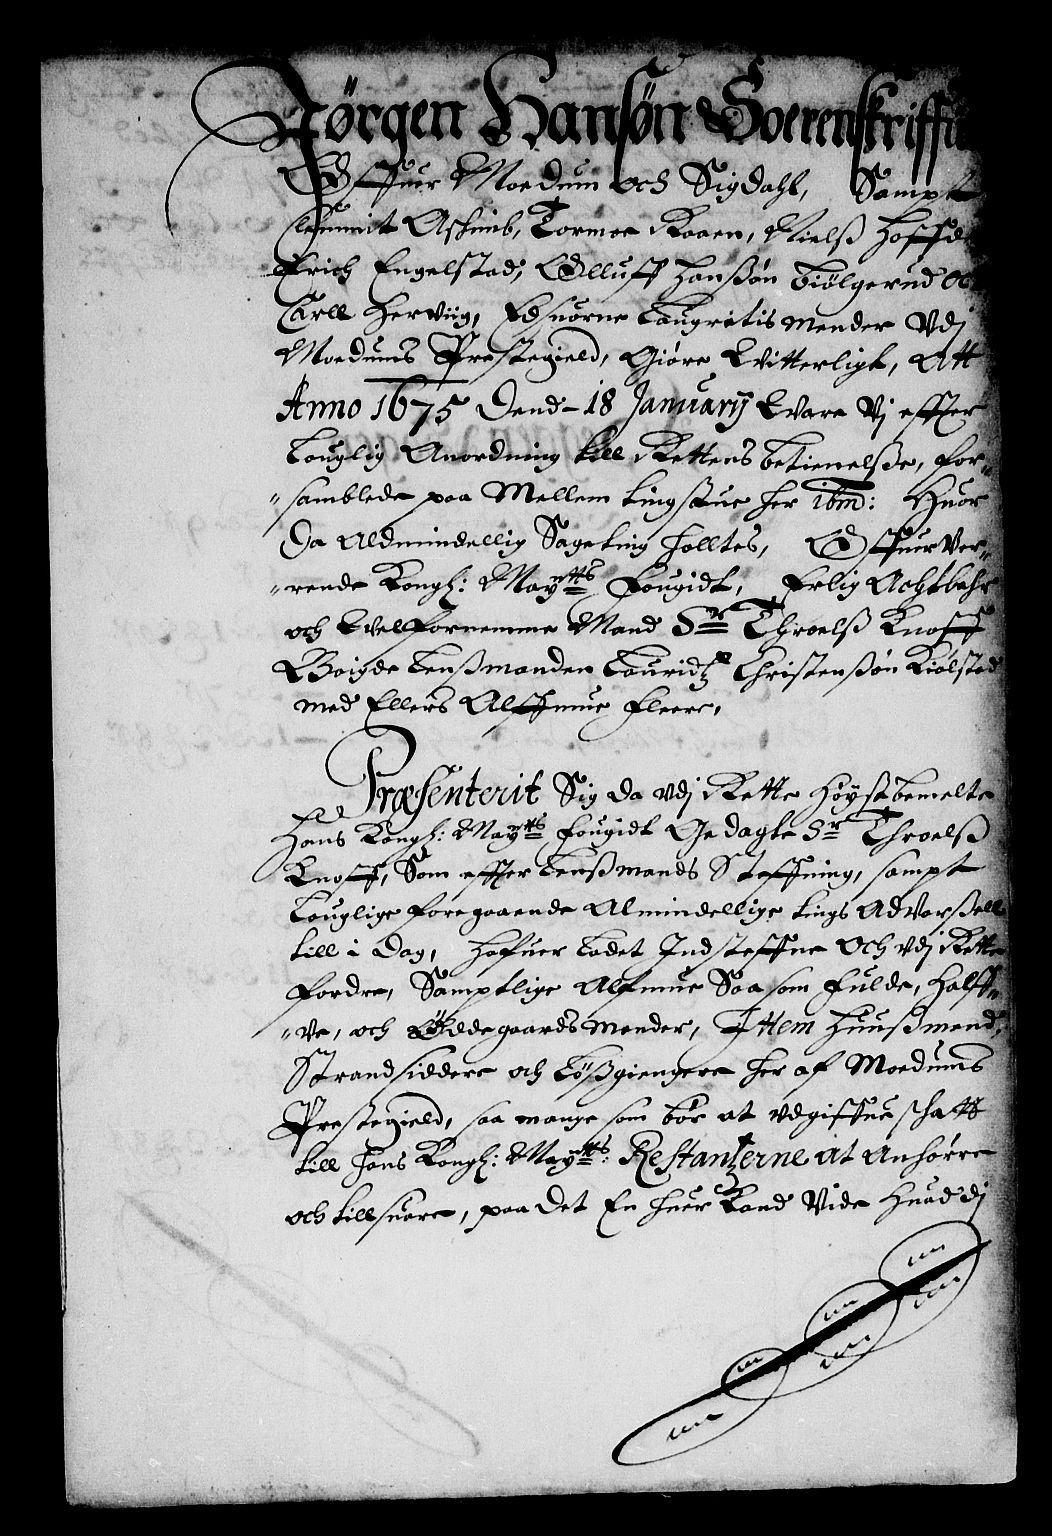 Jørgen Hansøn Soerenskriffue
Offuer Modum och Sigdahl, Sampt
Clemmit Aschimb, Tormoe Kaaen, Nielß Hoffde
Erich Engelstad, Olluff Hanßøn Tiølgerud oc
Carll Herviig, Edsuorne Laugrettis mender Vdj
Moedums Prestegield, Giøre Witterligt, Att
Anno 1675 Dend 18 January Ware Vj effter
Louglig Anordning till Rettens betienelße, for-
samblede paa Mellem tingstue her ibm: Huor
Da Aldmindellig Sageting holltes, Offuer Ver-
rende Kongl: Maytts Fougidt, Erlig Achtbahr
och Welfornemme Mand Sr Throelß Knoff
Boigde Lenßmanden Lauridtz Christenßøn Kiølstad
med Ellers Alffmue fleere,
Præsenterit Sig da vdj Rette Høystbemelte
Hans Kongl: Maytts fougidt Bedagte Sr Throelß
Knoff, Som effter Lenßmands Steffning, sampt
Louglige foregaaende Almindellige tings Advarßell
till i Dag, Hafuer Ladet Indsteffne och vdj Rette
fordre, Samptlige Almue Saasom Fulde, Halff-
ve, och Ødegaards mender, Ittem Huußmend,
Strandsiddere och Lößgiengere her af Moedums
Prestegield, saa mange som bör at vdgiffue schatt
till Hans Kongl: Maytts: Restantzerne at Anhørre
och tillsuare, paa det En huer Kand Vide Huad dj